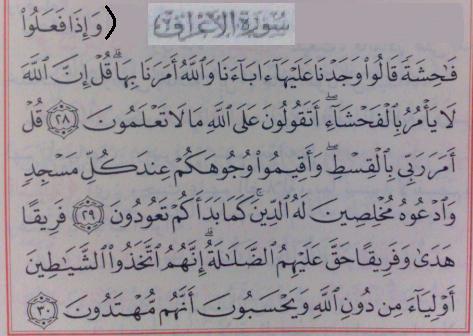 سورة الأعراف (وَإِذَا فَعَلُوا۟
فَـٰحِشَةً قَالُوا۟ وَجَدْنَا عَلَيْهَآ ءَابَآءَنَا وَٱللَّهُ أَمَرَنَا بِهَا ۗ قُلْ إِنَّ ٱللَّهَ
لَا يَأْمُرُ بِٱلْفَحْشَآءِ ۖ أَتَقُولُونَ عَلَى ٱللَّهِ مَا لَا تَعْلَمُونَ ٢٨ قُلْ
أَمَرَ رَبِّى بِٱلْقِسْطِ ۖ وَأَقِيمُوا۟ وُجُوهَكُمْ عِندَ كُلِّ مَسْجِدٍ
وَٱدْعُوهُ مُخْلِصِينَ لَهُ ٱلدِّينَ ۚ كَمَا بَدَأَكُمْ تَعُودُونَ ٢٩ فَرِيقًا
هَدَىٰ وَفَرِيقًا حَقَّ عَلَيْهِمُ ٱلضَّلَـٰلَةُ ۗ إِنَّهُمُ ٱتَّخَذُوا۟ ٱلشَّيَـٰطِينَ
أَوْلِيَآءَ مِن دُونِ ٱللَّهِ وَيَحْسَبُونَ أَنَّهُم مُّهْتَدُونَ ٣٠